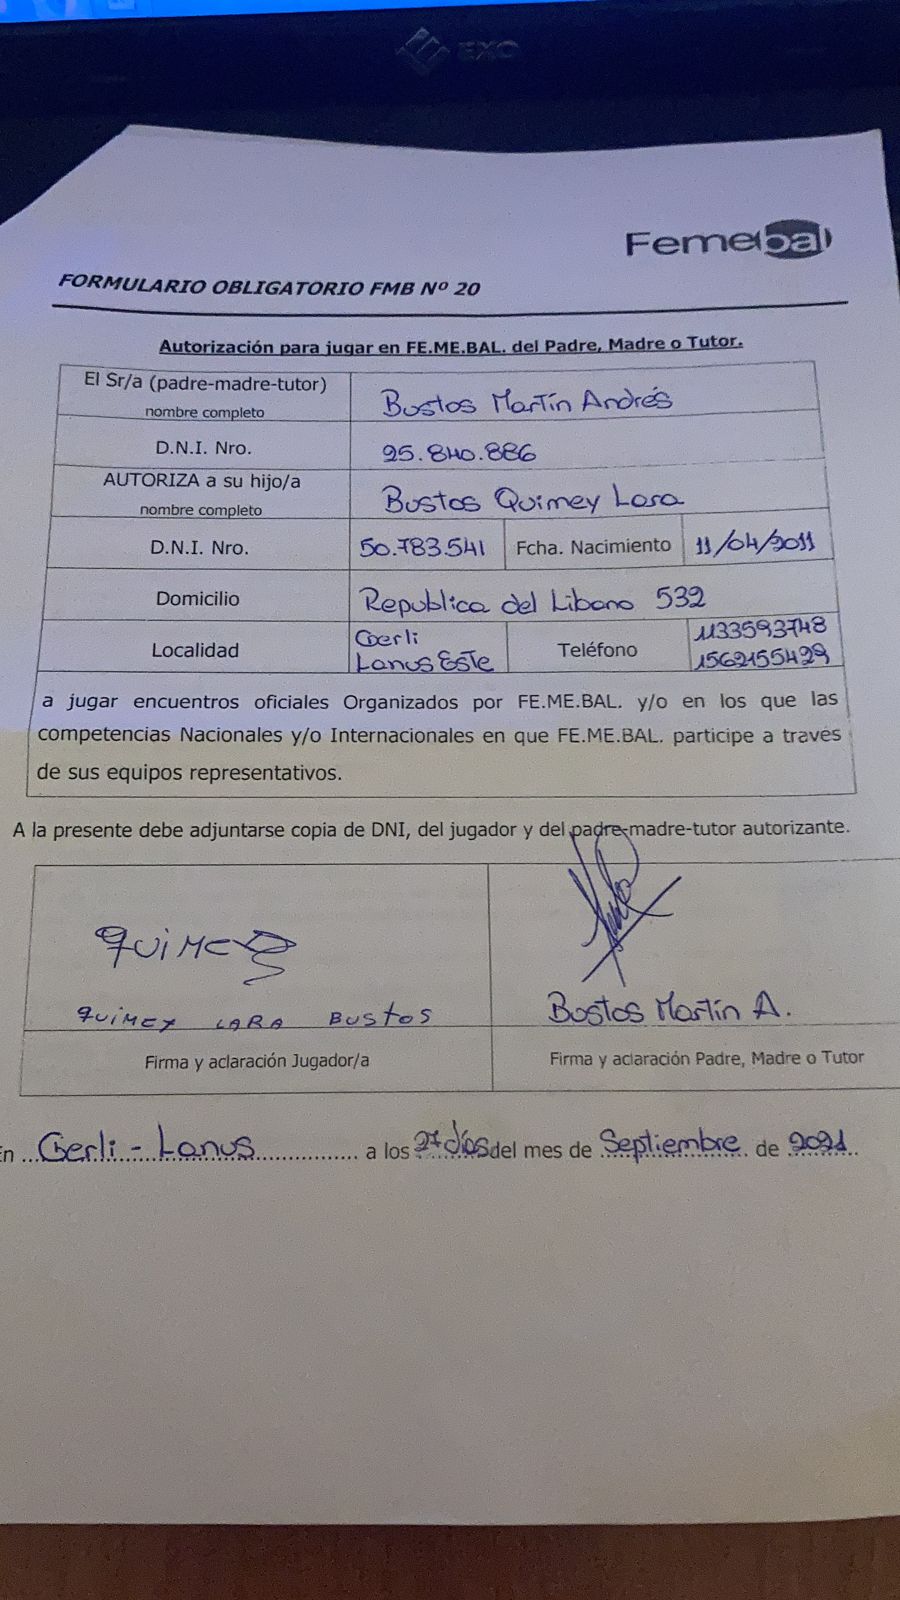 EXO
Femebal
FORMULARIO OBLIGATORIO FMB Nº 20
Autorización para jugar en FE.ME.BAL. del Padre, Madre o Tutor.
El Sr/a (padre-madre-tutor)
nombre completo
Bustos Martín Andrés
D.N.I. Nro.
25.840.886
AUTORIZA a su hijo/a
nombre completo
Bustos Quimey Lara
D.N.I. Nro.
50.783.541
Fcha. Nacimiento
11/04/2011
Domicilio
Republica del Libano 532
Localidad
Gerli
Lanus Este
Teléfono
1133593748
1562155429
a jugar encuentros oficiales Organizados por FE.ME.BAL. y/o en los que las
competencias Nacionales y/o Internacionales en que FE.ME.BAL. participe a través
de sus equipos representativos.
A la presente debe adjuntarse copia de DNI, del jugador y del padre-madre-tutor autorizante.
QUIMEY
QUIMEY LARA BUSTOS
Bustos Martín A.
Firma y aclaración Jugador/a
Firma y aclaración Padre, Madre o Tutor
En Gerli - Lanus a los 27 días del mes de Septiembre de 2021